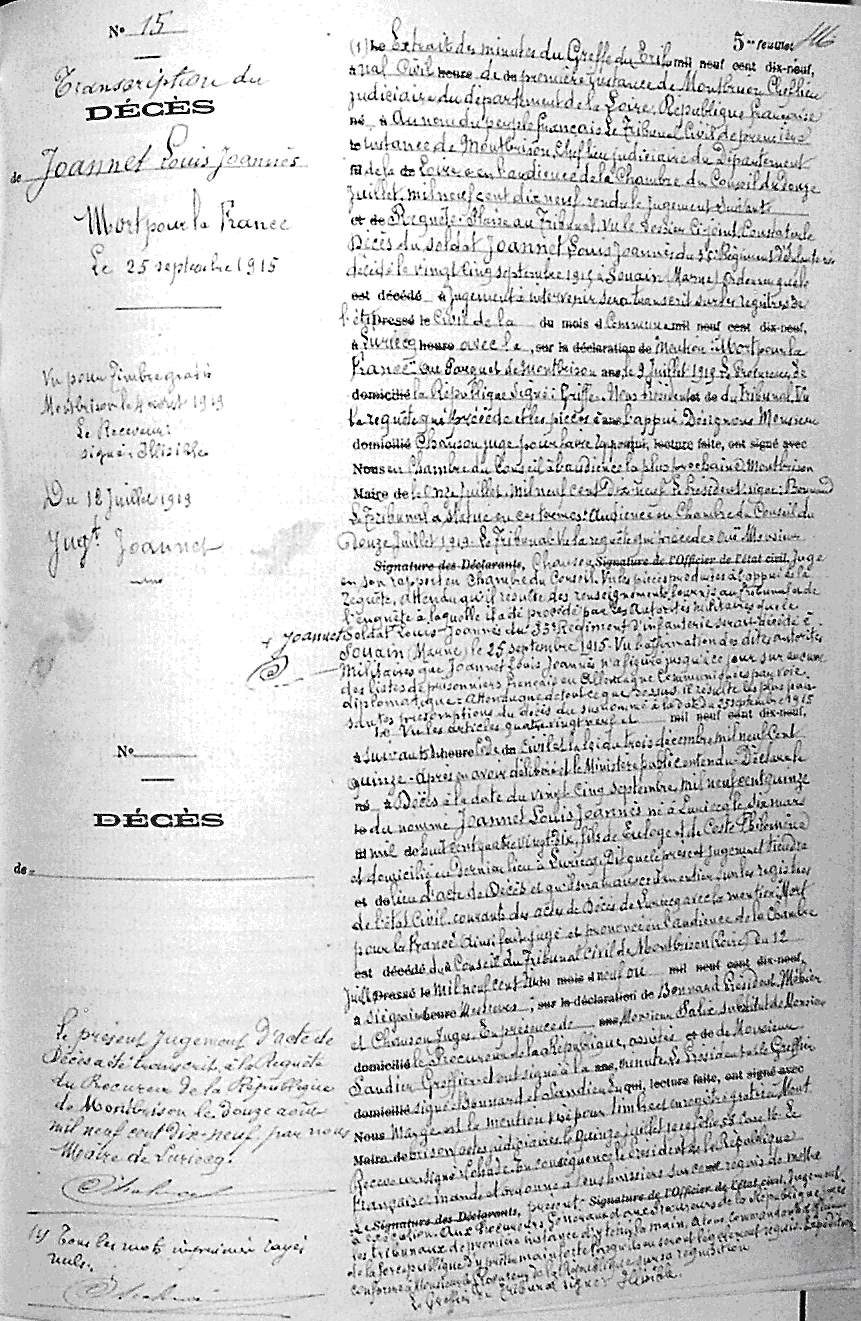 N° 15
Transcription du
DÉCÈS
de Joannet Louis Joannès
Mort pour la France
Le 25 septembre 1915
Vu pour timbre gratis
Montbrison le 4 août 1919
Le Receveur:
signé: Illisible
Du 12 Juillet 1919
Jugt. Joannet
+ Joannet
N°
DÉCÈS
de
Le présent Jugement d'acte de
Décès a été transcrit, à la Requête
du Procureur de la République
de Montbrison le douze août
mil neuf cent dix-neuf par nous
Maire de Luriecq.
(1) Tous les mots imprimés rayés
nuls.
5me feuillet
(1) Le Extrait des minutes du Greffe du Trib mil neuf cent dix-neuf,
à nal Civil heure de du première instance de Montbrison Chef lieu
judiciaire du département de la Loire. République française
né à Au nom du peuple français Le Tribunal Civil de première
le instance de Montbrison, Chef lieu judiciaire du Département
fil de la de Loire en l'audience de la Chambre du Conseil du douze
Juillet, mil neuf cent dix neuf, rendu le jugement suivant
et de Requête. Plaise au Tribunal. Vu le dossier ci-joint. Constater le
Décès du soldat Joannet Louis Joannès du Régiment d'Infanterie
décédé le vingt cinq septembre 1915 à Souain (Marne) Ordonner que le
est décédé à jugement à intervenir sera transcrit sur les registres de
l'état Dressé le Civil de la du mois d Commune mil neuf cent dix-neuf,
à Luriecq heure avec la , sur la déclaration de Mention: Mort pour la
France" Au Parquet de Montbrison ans, le 9 Juillet 1919 Le Procureur de
domicilié la République signé: Griffe. Nous Président et de du Tribunal. Vu
la requête qui précède et les pièces à ans, l'appui. Désignons Monsieur
domicilié Chauson juge pour faire qui, lecture faite, ont signé avec
Nous en Chambre du Conseil à l'audience la plus prochaine. Montbrison
Maire de le onze Juillet, mil neuf cent dix-neuf. Le Président: signé: Bonnard
Le Tribunal a statué en ces termes: Audience en Chambre du Conseil du
Douze Juillet 1919. Le Tribunal: Vu la requête qui précède. Ouï Monsieur
Signature des Déclarants, Chauson, Signature de l'Officier de l'état civil, Juge
en son rapport en Chambre du Conseil. Vu les pièces produites à l'appui de la
requête, attendu qu'il résulte des renseignements fournis au Tribunal et de
l'enquête à laquelle il a été procédé par les Autorités militaires que le
Soldat Louis-Joannès du Régiment d'infanterie serait décédé à
Souain (Marne) le 25 septembre 1915. Vu l'affirmation des dites autorités
Militaires que Joannet Louis Joannès n'a figuré jusqu'à ce jour sur aucune
des listes de prisonniers français en Allemagne communiquées par voie
diplomatique: Attendu que de tout ce que dessus il résulte les plus puis-
santes présomptions du décès du susnommé à la date du 25 septembre 1915
Le Vu les articles quatre vingt neuf et mil neuf cent dix-neuf,
à suivants heure Code du Civil et la loi du trois décembre mil neuf cent
quinze. Après en avoir délibéré et le Ministère public entendu. Déclare le
né à Décès à la date du vingt cinq septembre mil neuf cent quinze
le du nommé Joannet Louis Joannès né à Luriecq le dix mars
fil mil de huit cent quatre vingt dix, fils de Euloge et de Coste Philomène
et domicilié en dernier lieu à Luriecq. Dit que le présent jugement tiendra
et de lieu d'acte de Décès et qu'il sera transcrit en entier sur les registres
de l'état Civil courants des actes de Décès de Luriecq avec la mention: Mort
pour la France. Ainsi fait, jugé et prononcé en l'audience de la Chambre
est décédé du à Conseil du Tribunal Civil de Montbrison (Loire) du 12
Juill Dressé le mil neuf cent du mois d neuf ou mil neuf cent dix-neuf,
à siégeaient heure Messieurs , sur la déclaration de Bonnard Président,
et Chauson Juges. En présence de ans, Monsieur substitut de Monsieur
domicilié le Procureur de la République, assistés et de de Monsieur
Sandier Greffier et ont signé à la ans, minute. Le Président et le Greffier
domicilié signé: Bonnard et Sandier qui, lecture faite, ont signé avec
Nous Marge est la mention: Visé pour timbre et enregistré gratis à Mont
Maire de brison actes judiciaires le quinze juillet 1919 folio Case 16. Le
Receveur signé: En conséquence le Président de la République
française mande et ordonne à tous huissiers sur ce requis de mettre
Le Signature des Déclarants, présent Signature de l'Officier de l'état civil, Jugement
à exécution. Aux Procureurs Généraux et aux Procureurs de la République près
les tribunaux de première instance d'y tenir la main. A tous commandants et officiers
de la force publique d'y prêter main forte lorsqu'ils en seront légalement requis. Expédition
conforme à Monsieur le Procureur de la République sur sa requisition
Le Greffier du Tribunal signé: Illisible.